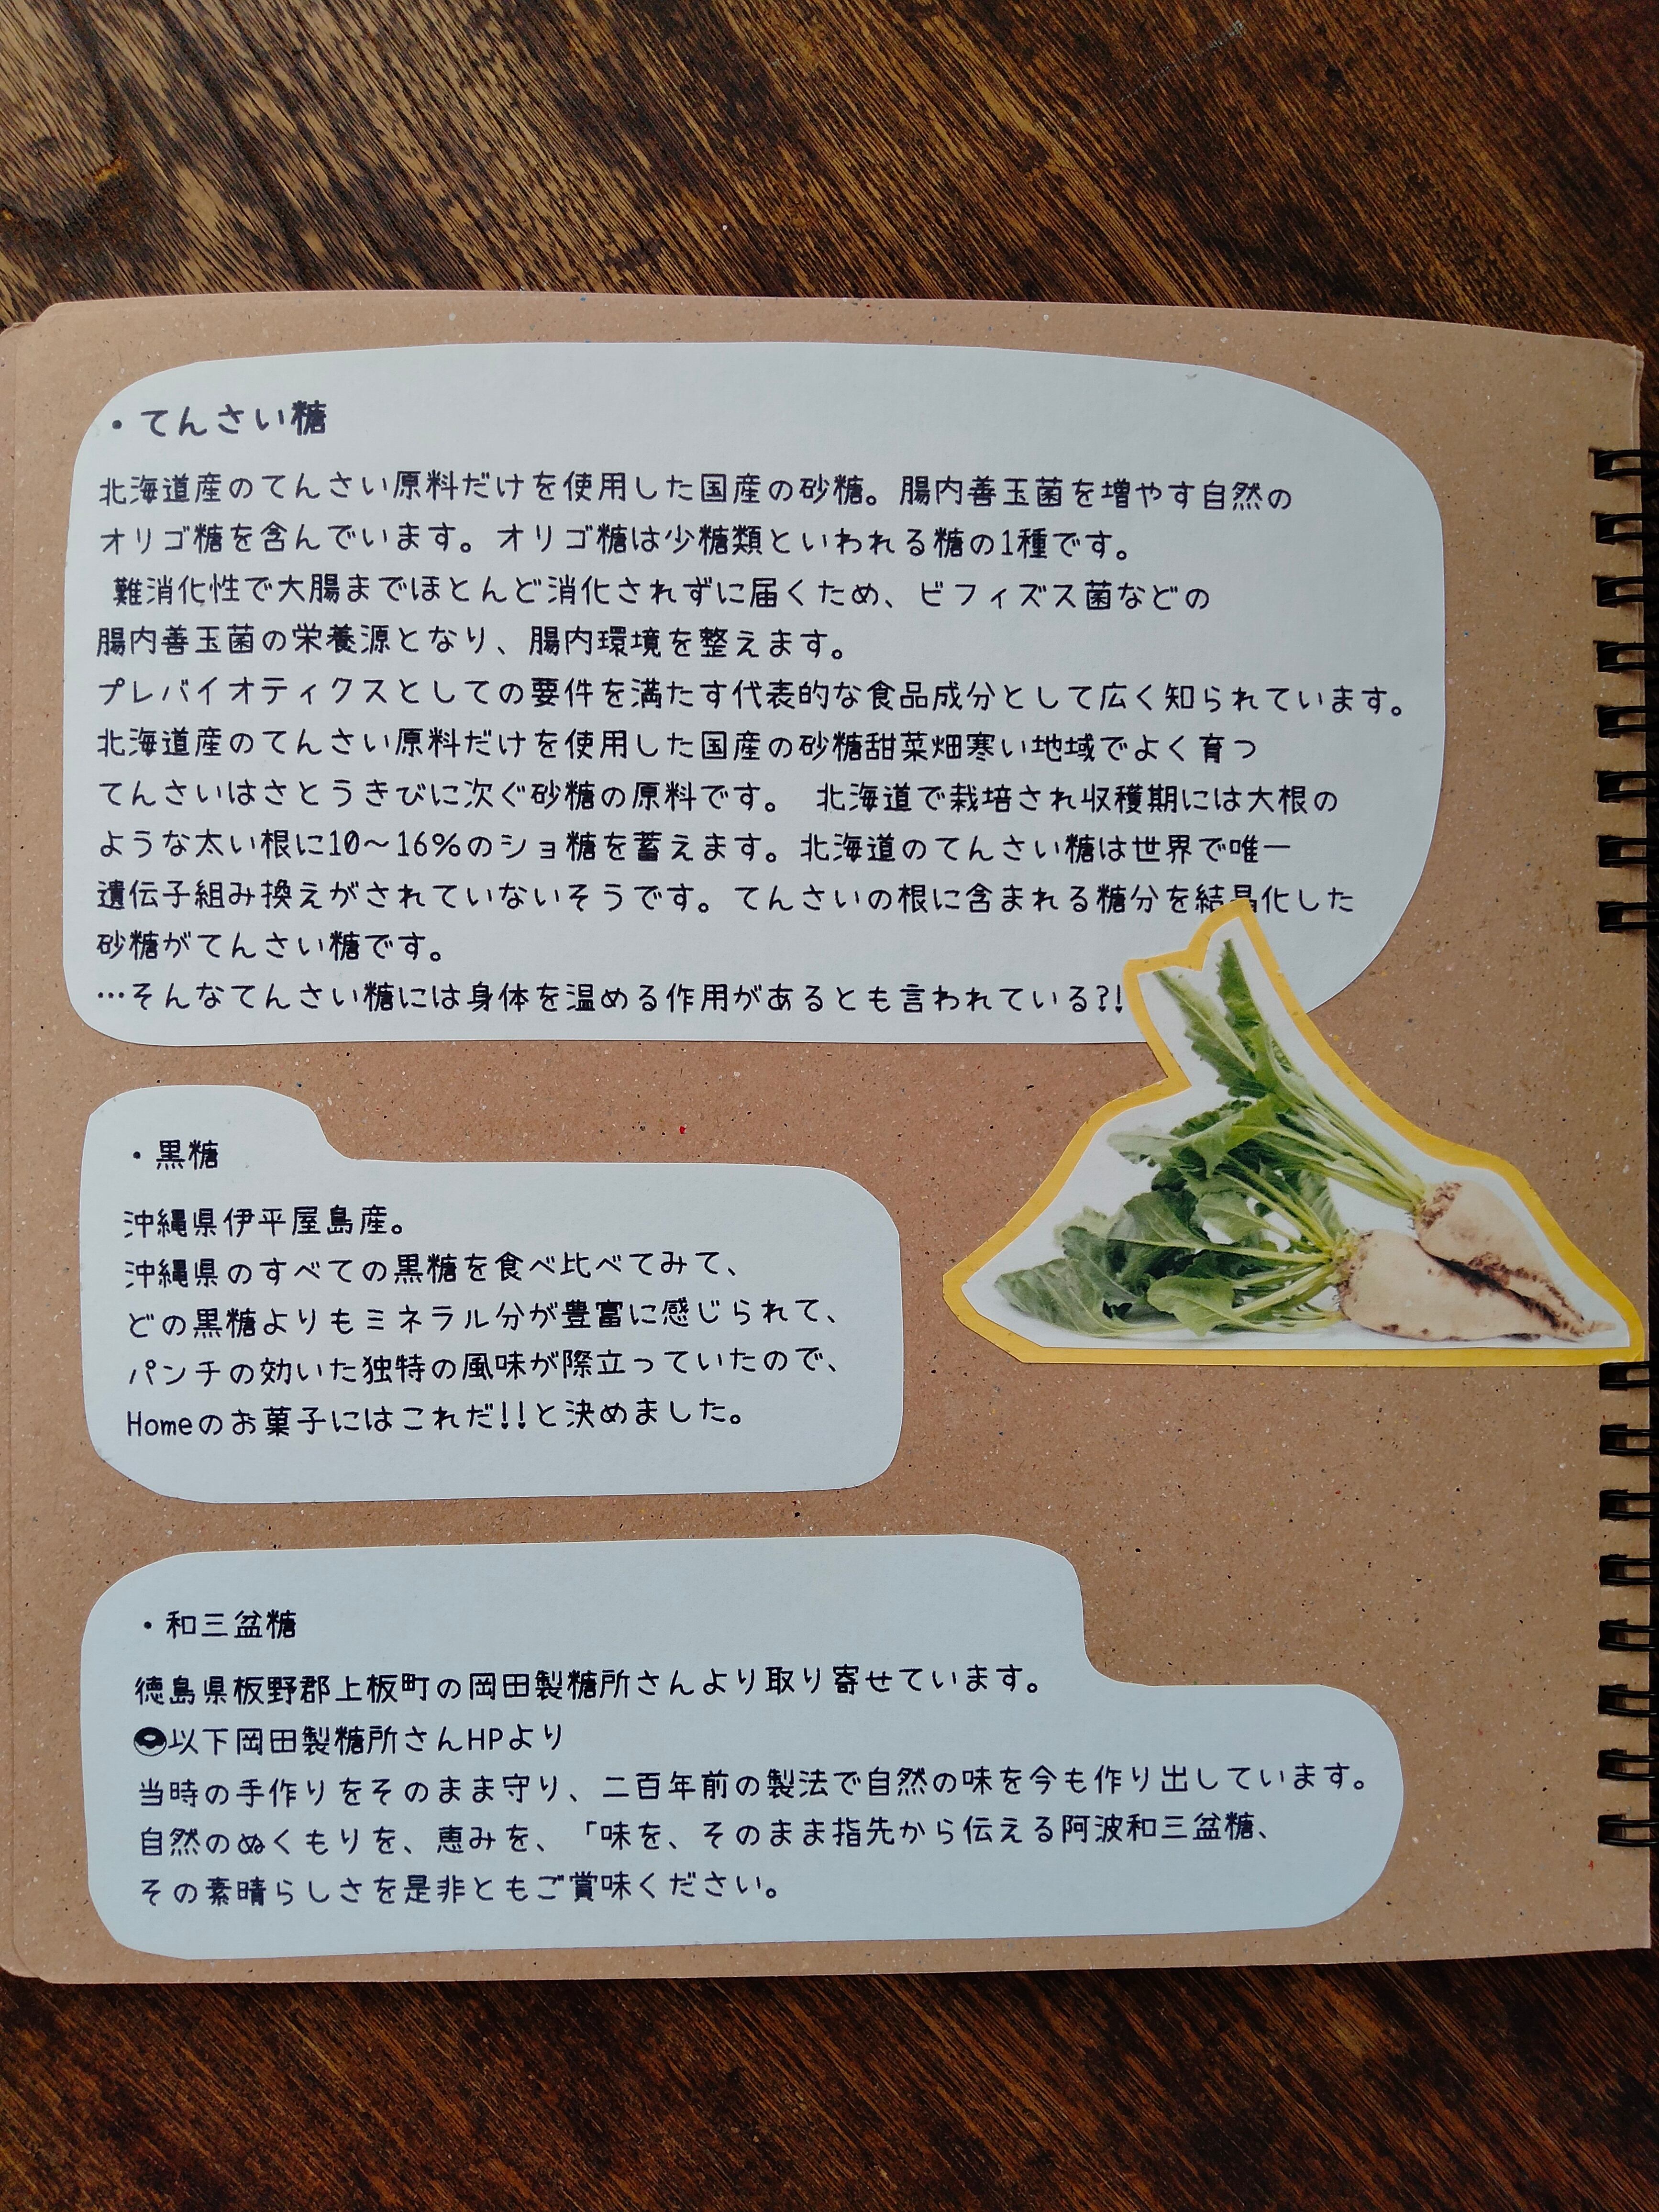 ・てんさい糖
北海道産のてんさい原料だけを使用した国産の砂糖。腸内善玉菌を増やす自然の
オリゴ糖を含んでいます。オリゴ糖は少糖類といわれる糖の1種です。
難消化性で大腸までほとんど消化されずに届くため、ビフィズス菌などの
腸内善玉菌の栄養源となり、腸内環境を整えます。
プレバイオティクスとしての要件を満たす代表的な食品成分として広く知られています。
北海道産のてんさい原料だけを使用した国産の砂糖甜菜畑寒い地域でよく育つ
てんさいはさとうきびに次ぐ砂糖の原料です。 北海道で栽培され収穫期には大根の
ような太い根に10～16%のショ糖を蓄えます。北海道のてんさい糖は世界で唯一
遺伝子組み換えがされていないそうです。てんさいの根に含まれる糖分を結晶化した
砂糖がてんさい糖です。
…そんなてんさい糖には身体を温める作用があるとも言われている?!
・黒糖
沖縄県伊平屋島産。
沖縄県のすべての黒糖を食べ比べてみて、
どの黒糖よりもミネラル分が豊富に感じられて、
パンチの効いた独特の風味が際立っていたので、
Homeのお菓子にはこれだ!!と決めました。
・和三盆糖
徳島県板野郡上板町の岡田製糖所さんより取り寄せています。
以下岡田製糖所さんHPより
当時の手作りをそのまま守り、二百年前の製法で自然の味を今も作り出しています。
自然のぬくもりを、恵みを、「味を、そのまま指先から伝える阿波和三盆糖、
その素晴らしさを是非ともご賞味ください。